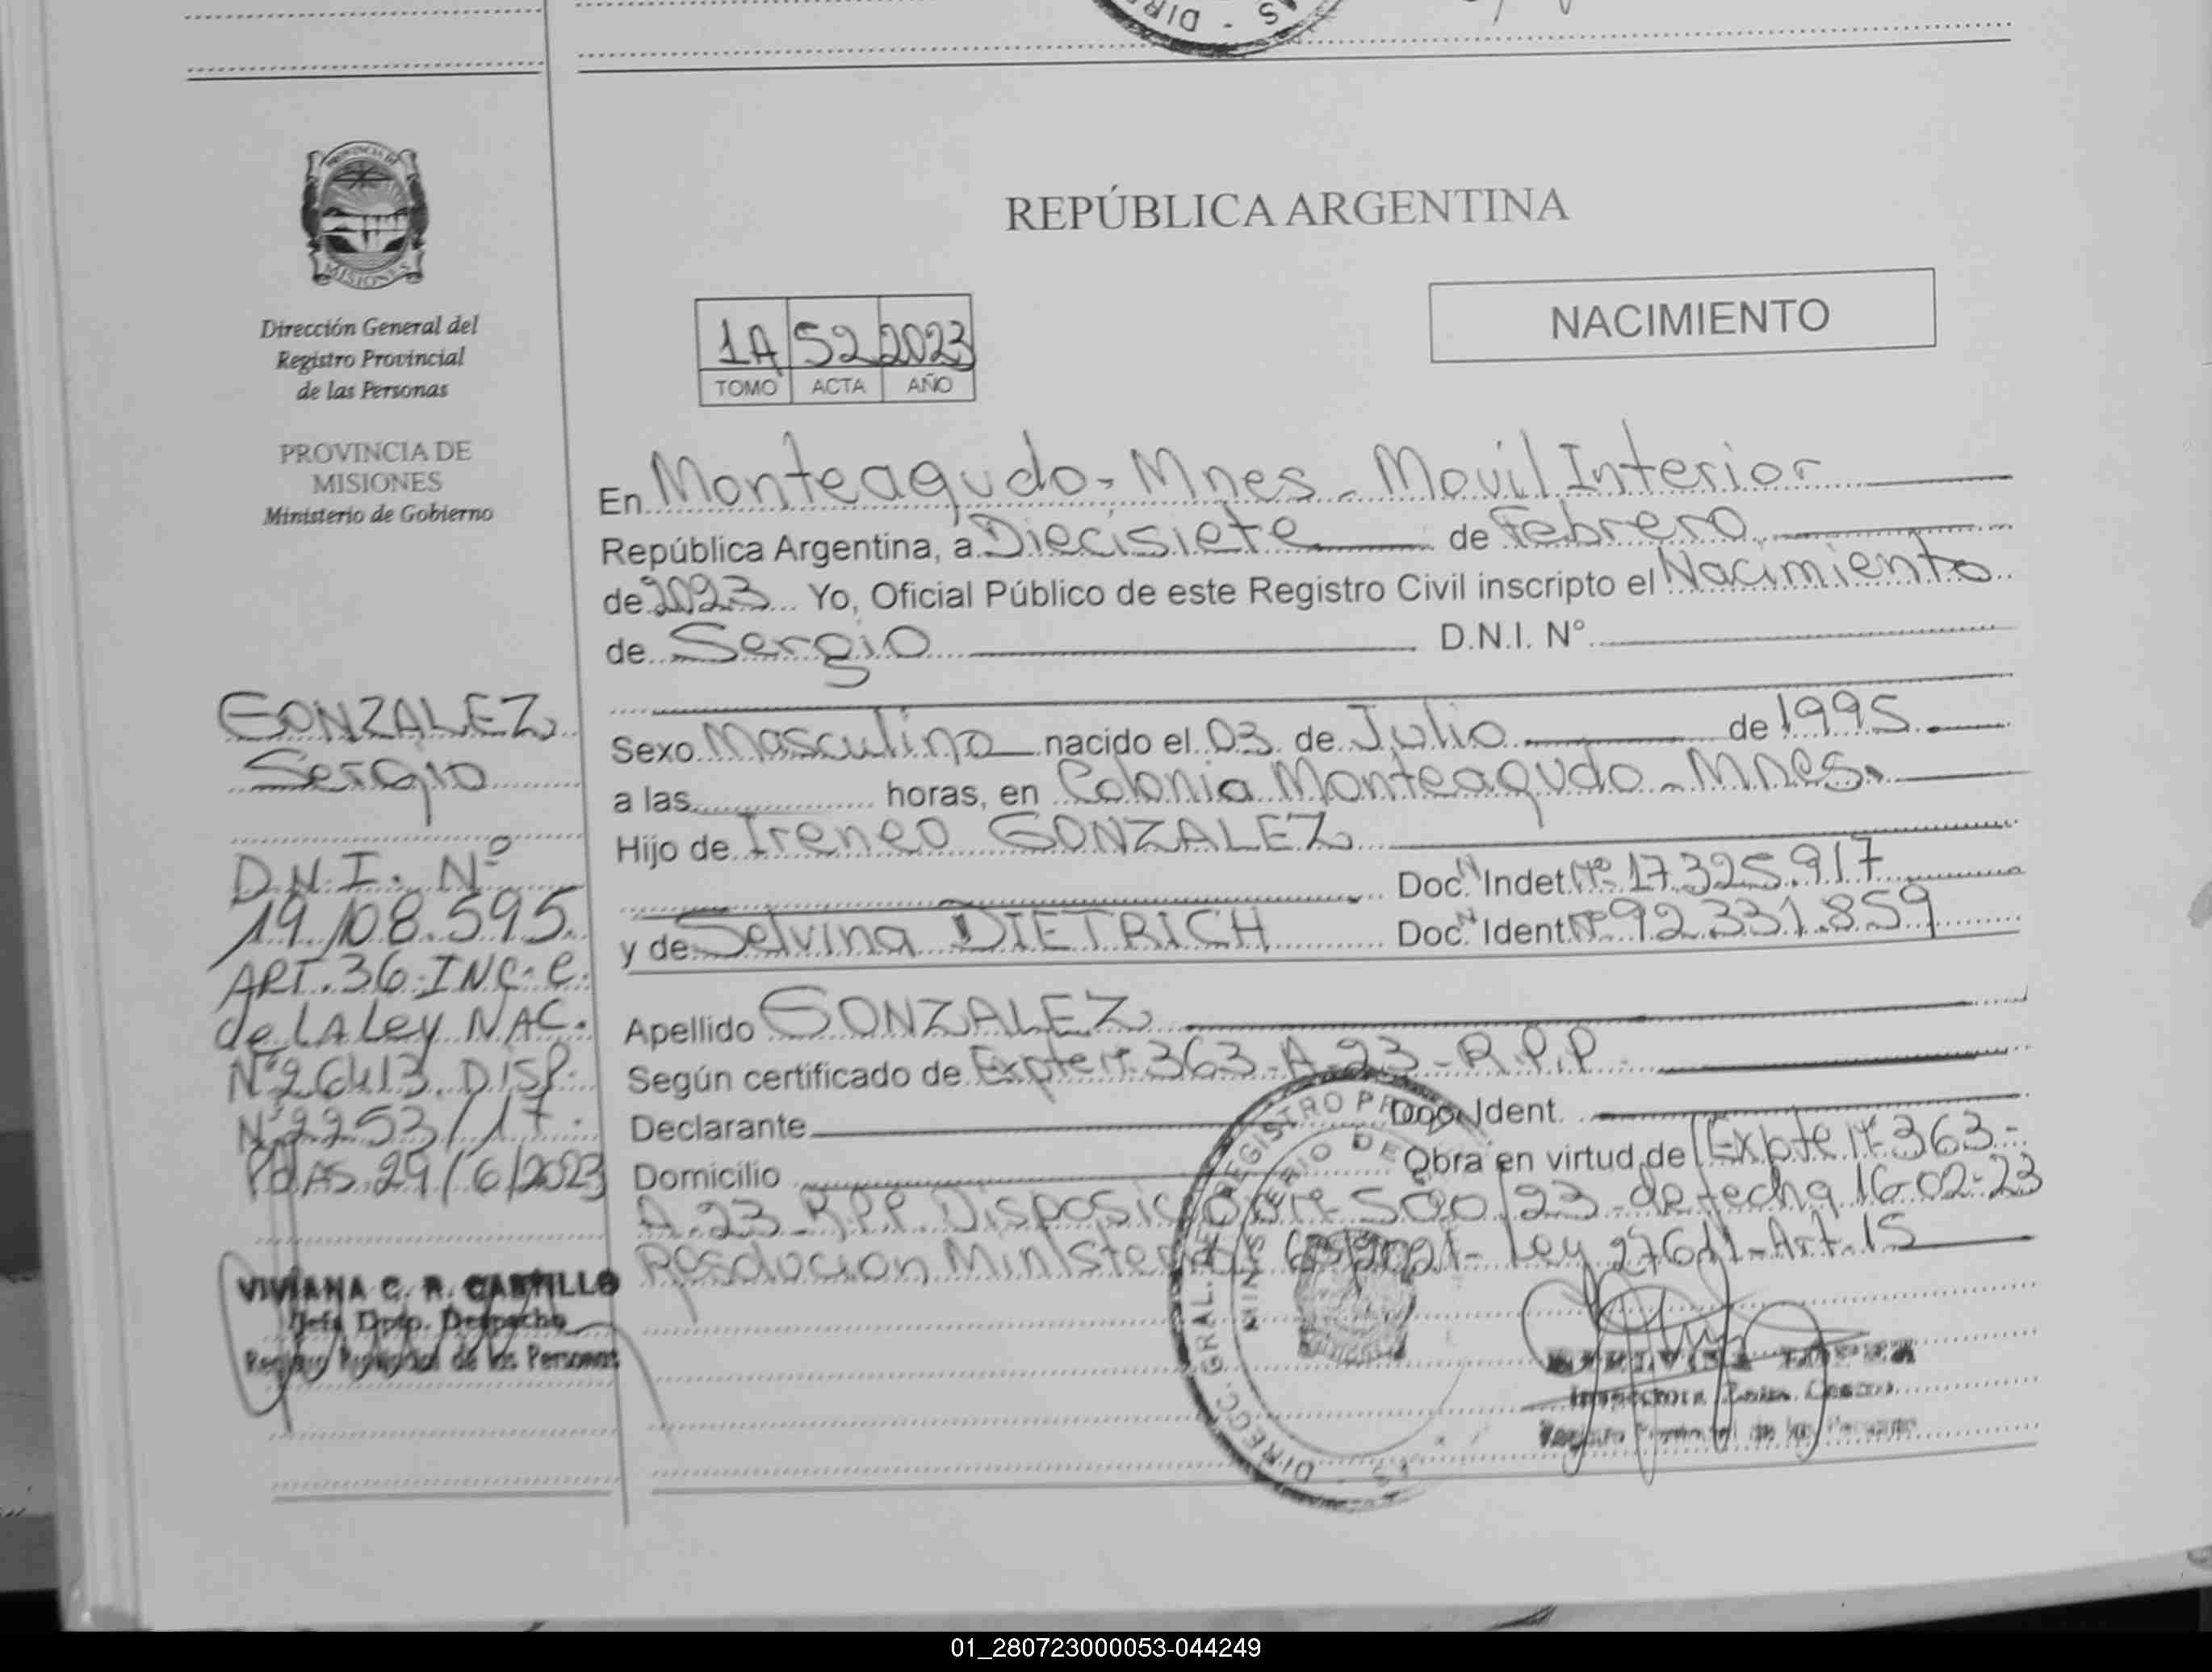 PROVINCIA DE
MISIONES
Dirección General del
Registro Provincial
de las Personas
PROVINCIA DE
MISIONES
Ministerio de Gobierno
GONZALEZ
Sergio
D.N.I. Nº
19.108.595.
ART. 36 INC. e.
de LA Ley NAC.
Nº 26413. DISP.
Nº 2253/17.
Pdas. 29/6/2023
VIVIANA C. R. CASTILLO
Jefa Dpto. Despacho
Registro Provincial de las Personas
REPÚBLICA ARGENTINA
NACIMIENTO
1A 52 2023
TOMO ACTA AÑO
En Monteagudo - Mnes - Movil Interior
República Argentina, a Diecisiete de Febrero
de 2023 Yo, Oficial Público de este Registro Civil inscripto el Nacimiento
de Sergio D.N.I. N°
Sexo Masculino nacido el 03 de Julio de 1995
a las horas, en Colonia Monteagudo - Mnes.
Hijo de Ireneo GONZALEZ
Doc. Indet. Nº 17.325.917
y de Selvina DIETRICH Doc. Ident. Nº 92.331.859
Apellido GONZALEZ
Según certificado de Expte nº 363-A-23-R.P.P
Declarante Doc. Ident.
Domicilio Obra en virtud de Expte nº 363-
A-23 RPP Disposicion nº 500/23 - de fecha 16-02-23
Resolucion Ministerial Ley 27611 - Art. 15
Registro Provincial de las Personas
01_280723000053-044249